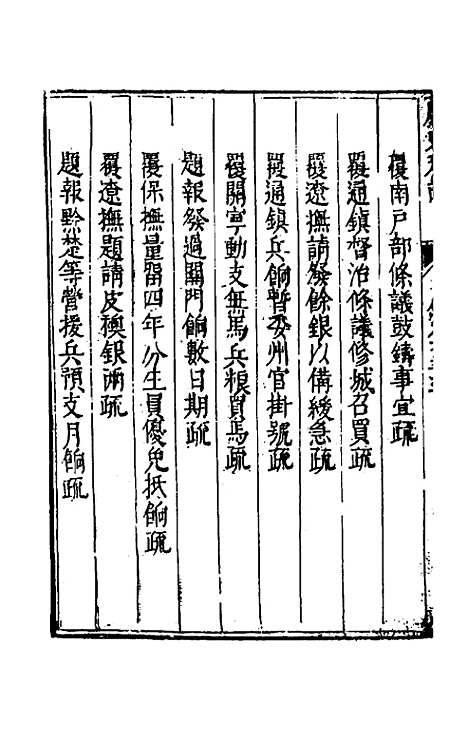 覆南戶部條議鼓鑄事宜疏
覆通鎮督治條議修城召買疏
覆遼撫請發餘銀以備緩急疏
覆通鎮兵餉暫委州官掛號疏
覆關寧動支無馬兵粮買馬疏
題報發過關門餉數日期疏
覆保撫量留四年分生員優免抵餉疏
覆遼撫題請皮襖銀兩疏
題報黔楚等營援兵預支月餉疏